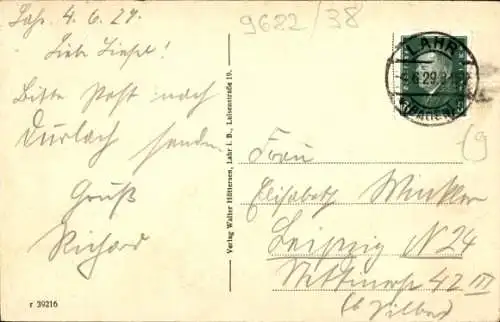 Lahr, 4.6.29.
Liebe Liesel!
Bitte Post nach
Durlach senden
Gruß
Richard
r 39216
Verlag Walter Hüttersen, Lahr i. B., Luisenstraße 19.
9622/38
LAHR
4.6.29.
(BADEN)
19
Frau
Elisabeth Winkler
Leipzig N 24
42 III